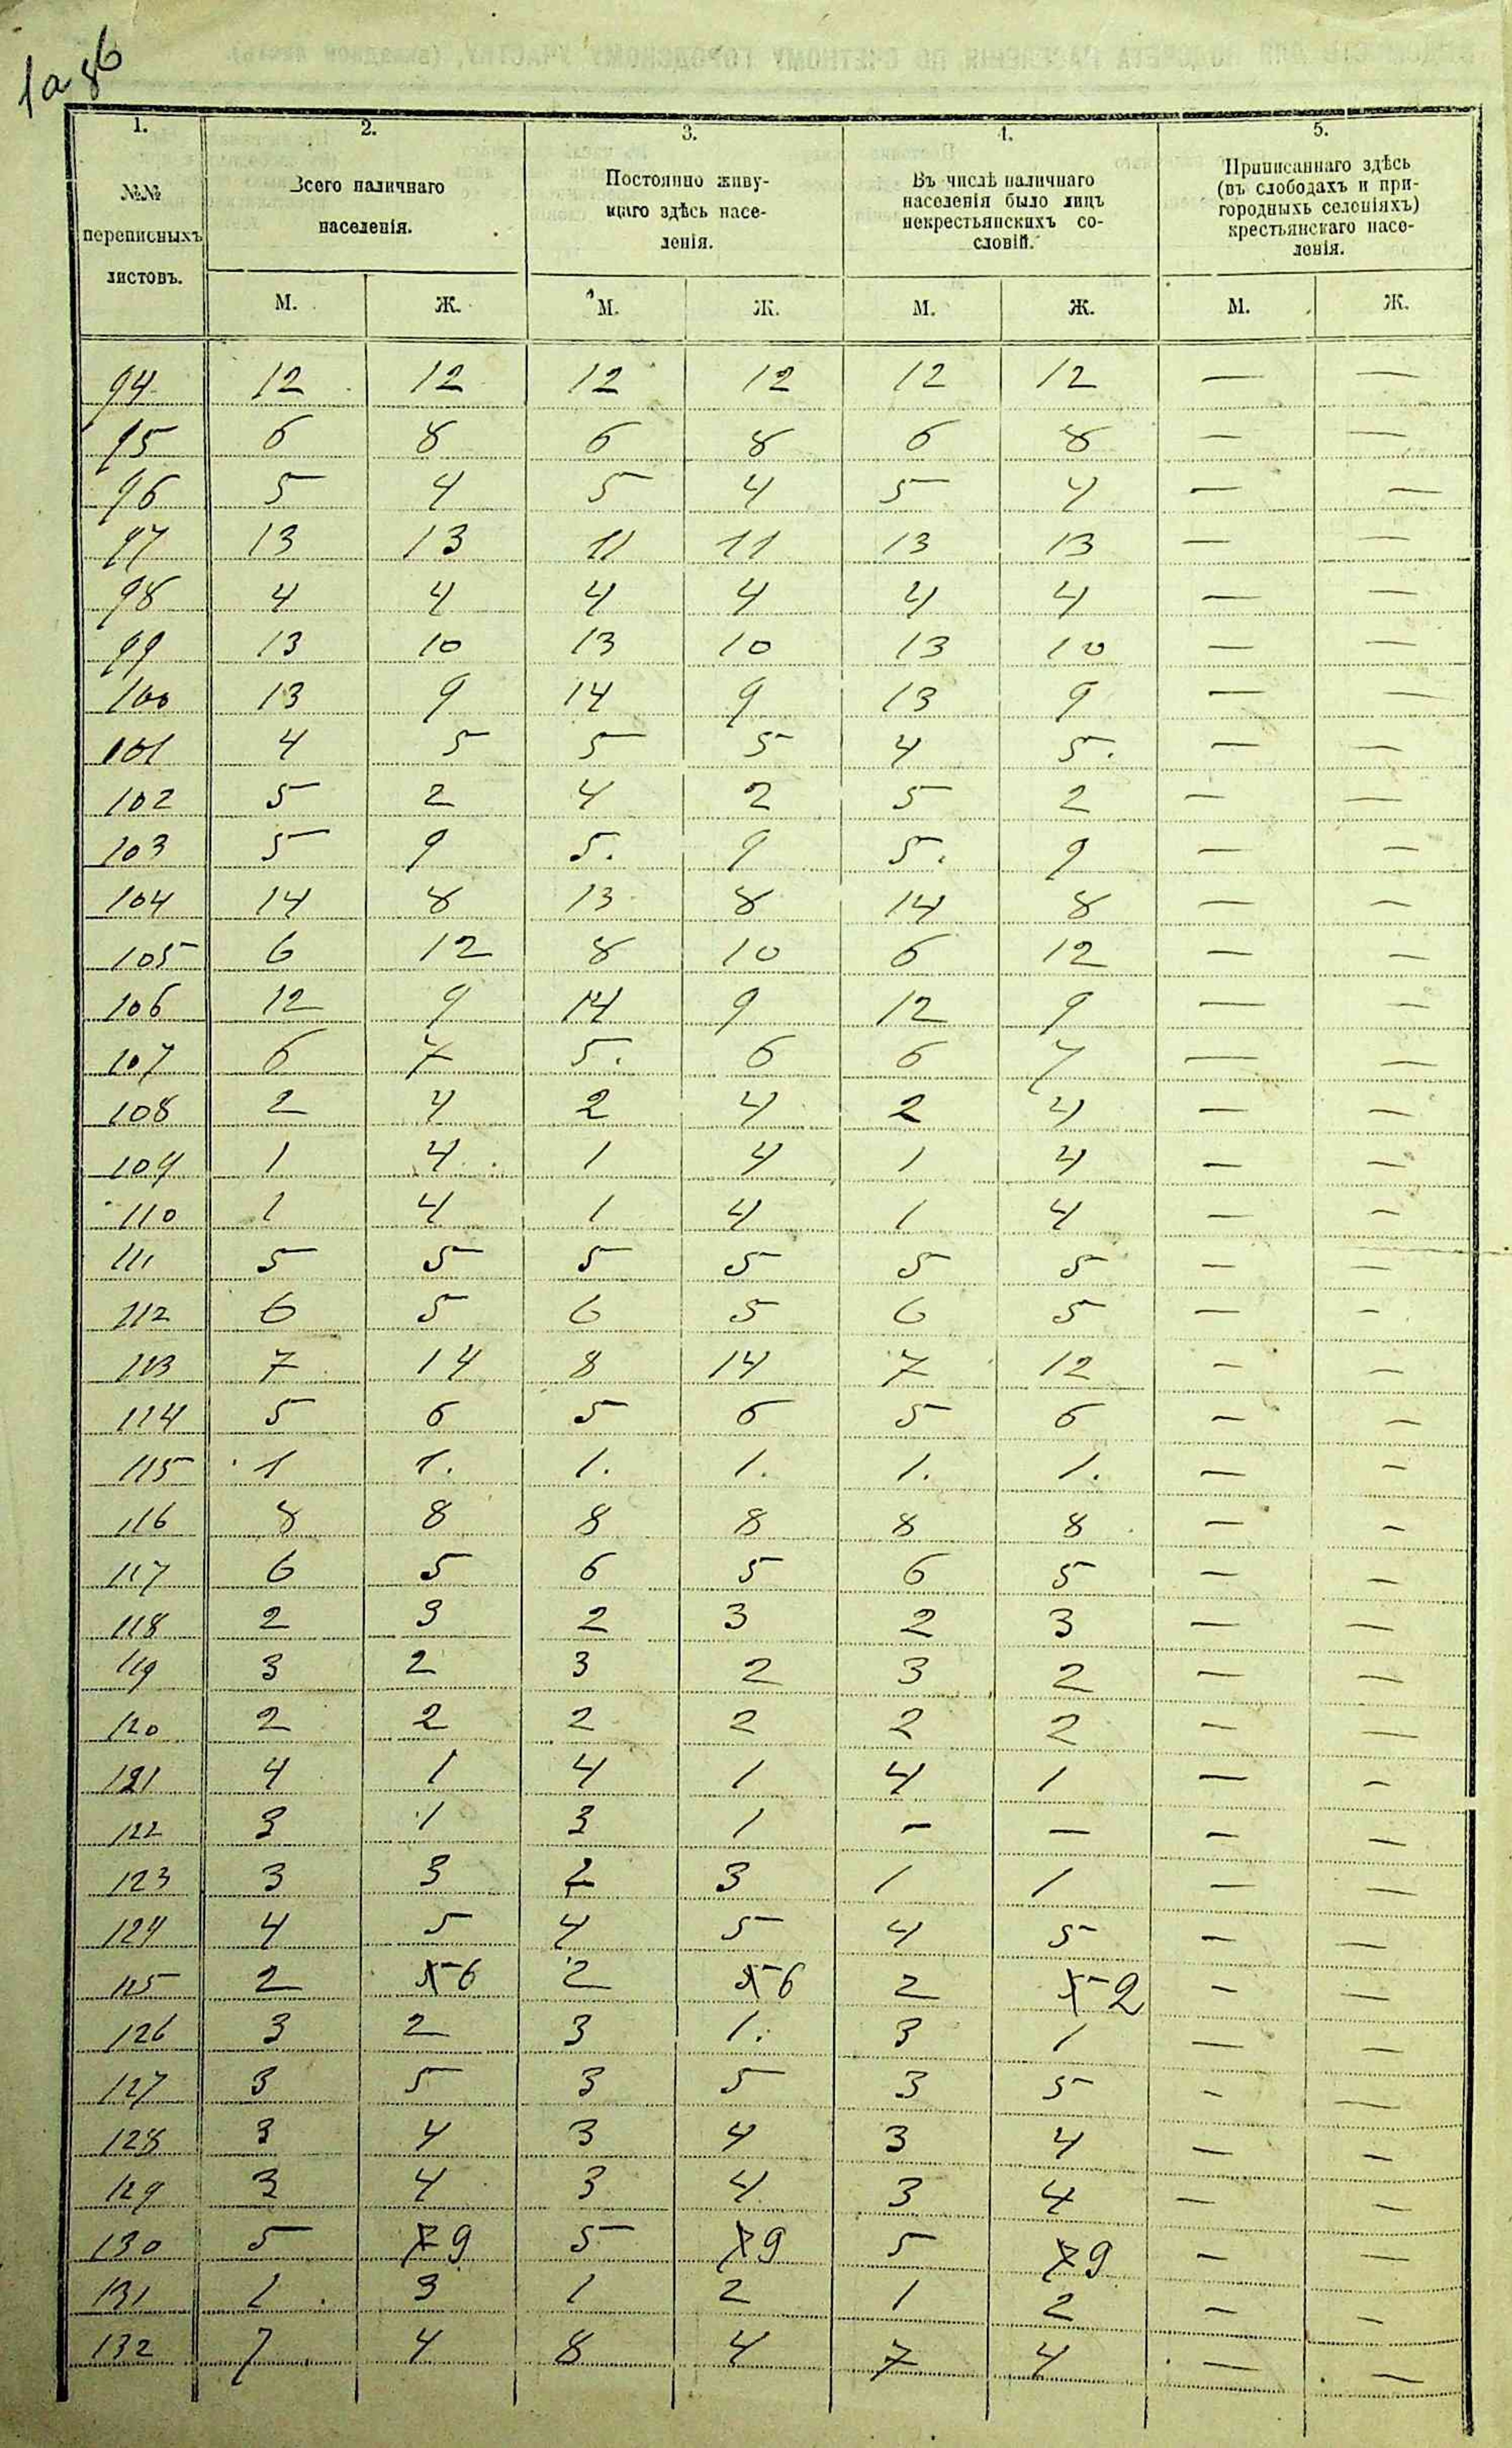 1a 86
1. 2. 3. 4. 5.
№№ переписныхъ листовъ.
Всего наличнаго населенія.
Постоянно живу-
щаго здѣсь насе-
ленія.
Въ числѣ наличнаго
населенія было лицъ
некрестьянскихъ со-
словій.
Приписаннаго здѣсь
(въ слободахъ и при-
городныхъ селеніяхъ)
крестьянскаго насе-
ленія.
М. Ж. М. Ж. М. Ж. М. Ж.
94 12 12 12 12 12 12 — —
95 6 8 6 8 6 8 — —
96 5 4 5 4 5 4 — —
97 13 13 11 11 13 13 — —
98 4 4 4 4 4 4 — —
99 13 10 13 10 13 10 — —
100 13 9 14 9 13 9 — —
101 4 5 5 5 4 5. — —
102 5 2 4 2 5 2 — —
103 5 9 5. 9 5. 9 — —
104 14 8 13 8 14 8 — —
105 6 12 8 10 6 12 — —
106 12 9 14 9 12 9 — —
107 6 7 5. 6 6 7 — —
108 2 4 2 4 2 4 — —
109 1 4 1 4 1 4 — —
110 1 4 1 4 1 4 — —
111 5 5 5 5 5 5 — —
112 6 5 6 5 6 5 — —
113 7 14 8 14 7 12 — —
114 5 6 5 6 5 6 — —
115 1 1. 1. 1. 1. 1. — —
116 8 8 8 8 8 8 — —
117 6 5 6 5 6 5 — —
118 2 3 2 3 2 3 — —
119 3 2 3 2 3 2 — —
120 2 2 2 2 2 2 — —
121 4 1 4 1 4 1 — —
122 3 1 3 1 — — — —
123 3 3 2 3 1 1 — —
124 4 5 4 5 4 5 — —
125 2 5 6 2 5 6 2 5 2 — —
126 3 2 3 1. 3 1 — —
127 3 5 3 5 3 5 — —
128 3 4 3 4 3 4 — —
129 3 4 3 4 3 4 — —
130 5 7 9 5 7 9 5 7 9 — —
131 1 3 1 2 1 2 — —
132 7 4 8 4 7 4 — —